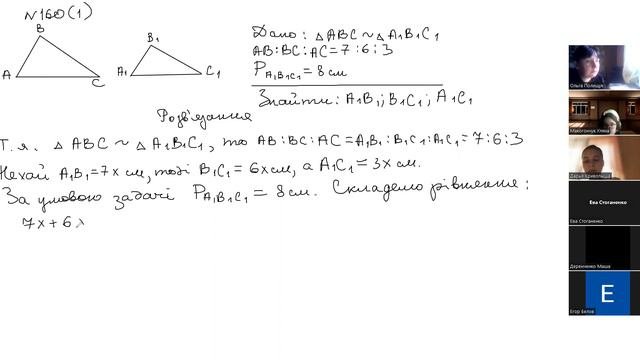 N160(1)
B
A
C
B₁
A₁
C₁
Дано: △ABC ~ △A₁B₁C₁
AB:BC:AC=7:6:3
P A₁B₁C₁ = 8 см
Знайти: A₁B₁; B₁C₁; A₁C₁
Розв'язання
Т.я. △ABC ~ △A₁B₁C₁, то AB:BC:AC=A₁B₁:B₁C₁:A₁C₁=7:6:3
Нехай A₁B₁=7x см, тоді B₁C₁=6x см, а A₁C₁=3x см.
За умовою задачі P A₁B₁C₁ = 8 см. Складемо рівняння:
7x+6x
Ольга Полищук
Макогончук Уляна
Дарья Кривольца
Ева Стоганенко
Ева Стоганенко
Деревченко Маша
E
Егор Белов